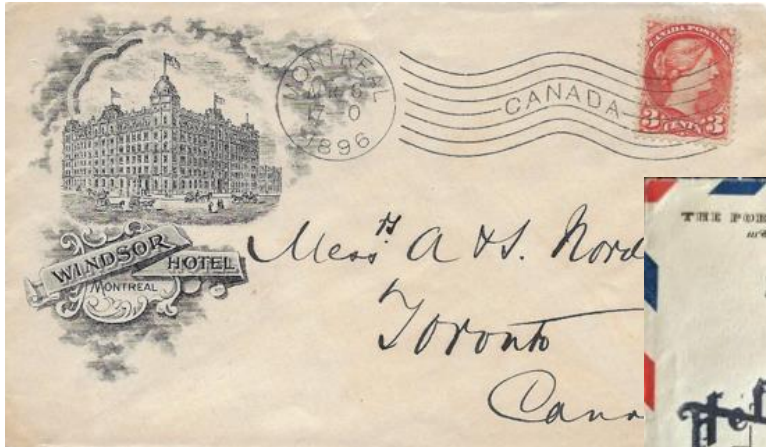 MONTREAL
1896
CANADA
CANADA POSTAGE
3 CENTS 3
WINDSOR
HOTEL
MONTREAL
Messrs A & S. Nord
Toronto
Cana
THE POR